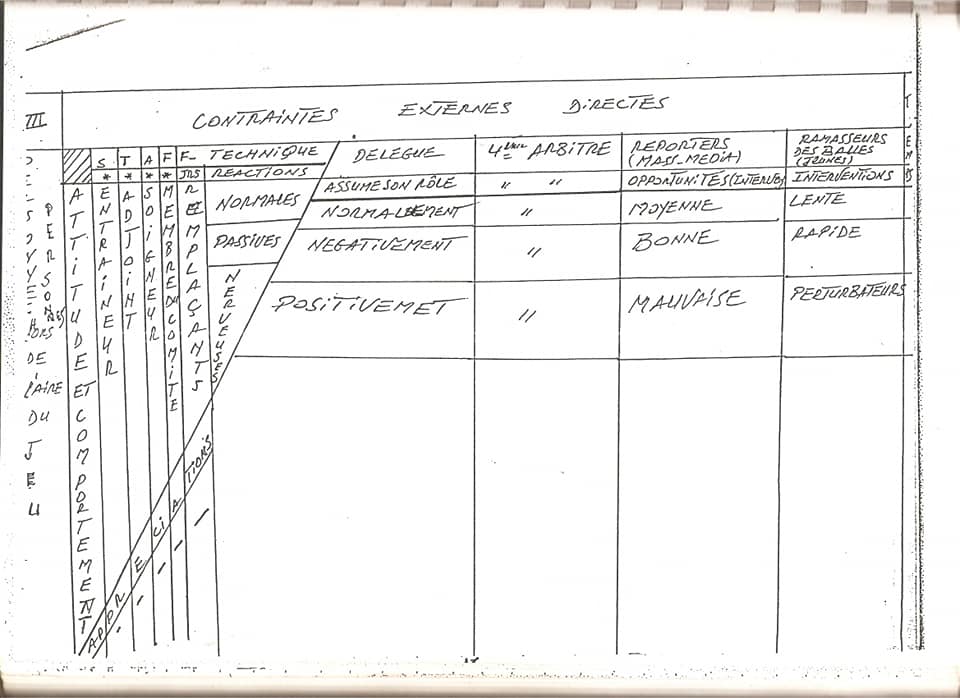 III
CONTRAINTES EXTERNES DIRECTES
S T A F F - TECHNIQUE
DELEGUE
4ème ARBITRE
REPORTERS
(MASS-MEDIA)
RAMASSEURS
DES BALLES
(JEUNES)
* * * * JRS REACTIONS
ASSUME SON RÔLE
" "
OPPORTUNITÉS (INTERVUES)
INTERVENTIONS
NORMALES
NORMALEMENT
"
MOYENNE
LENTE
PASSIVES
NEGATIVEMENT
"
BONNE
RAPIDE
NERVEUSES
POSITIVEMET
"
MAUVAISE
PERTURBATEURS
ATTITUDE ET COMPORTEMENT
ENTRAINEUR
ADJOINT
SOIGNEUR
MEMBRE DU COMITE
REMPLAÇANTS
APPRECIATIONS
HORS
DE
L'AIRE
DU
JEU